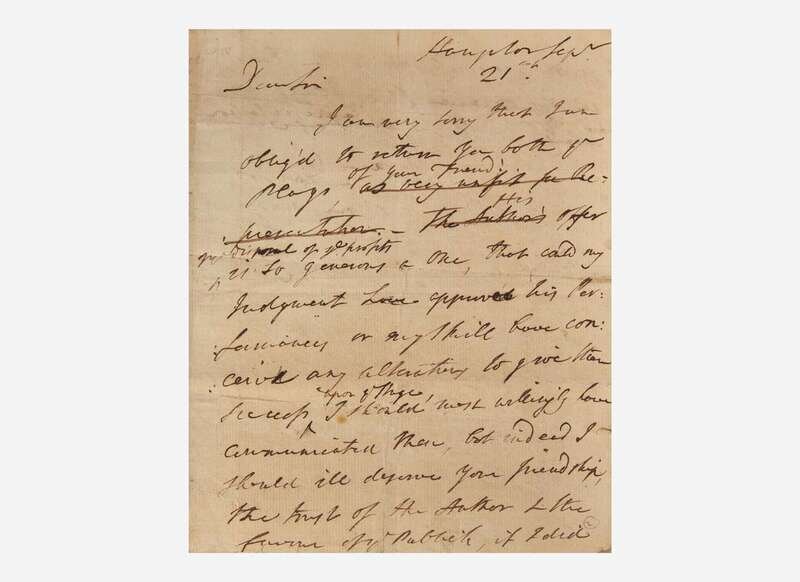 Hampton Sepr
21st.
Dear Sir
I am very sorry that I am
oblig'd to return You both ye
of your Friend:
Plays as being unfit for Re-
His
presentation. - The Author's offer
disposal of ye profits
is so generous a One, that could my
Judgment have approved his Per-
formances or my skill have con-
ceived any alterations to give them
upon ye Stage,
success, I should most willingly have
communicated them, but indeed I
should ill deserve Your friendship,
the trust of the Author & the
favour of ye Publick, if I did